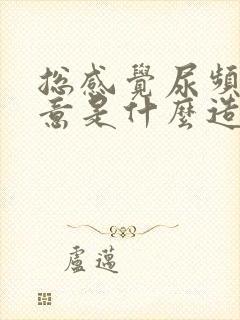 總感覺尿頻
意是什麼造
盧邁